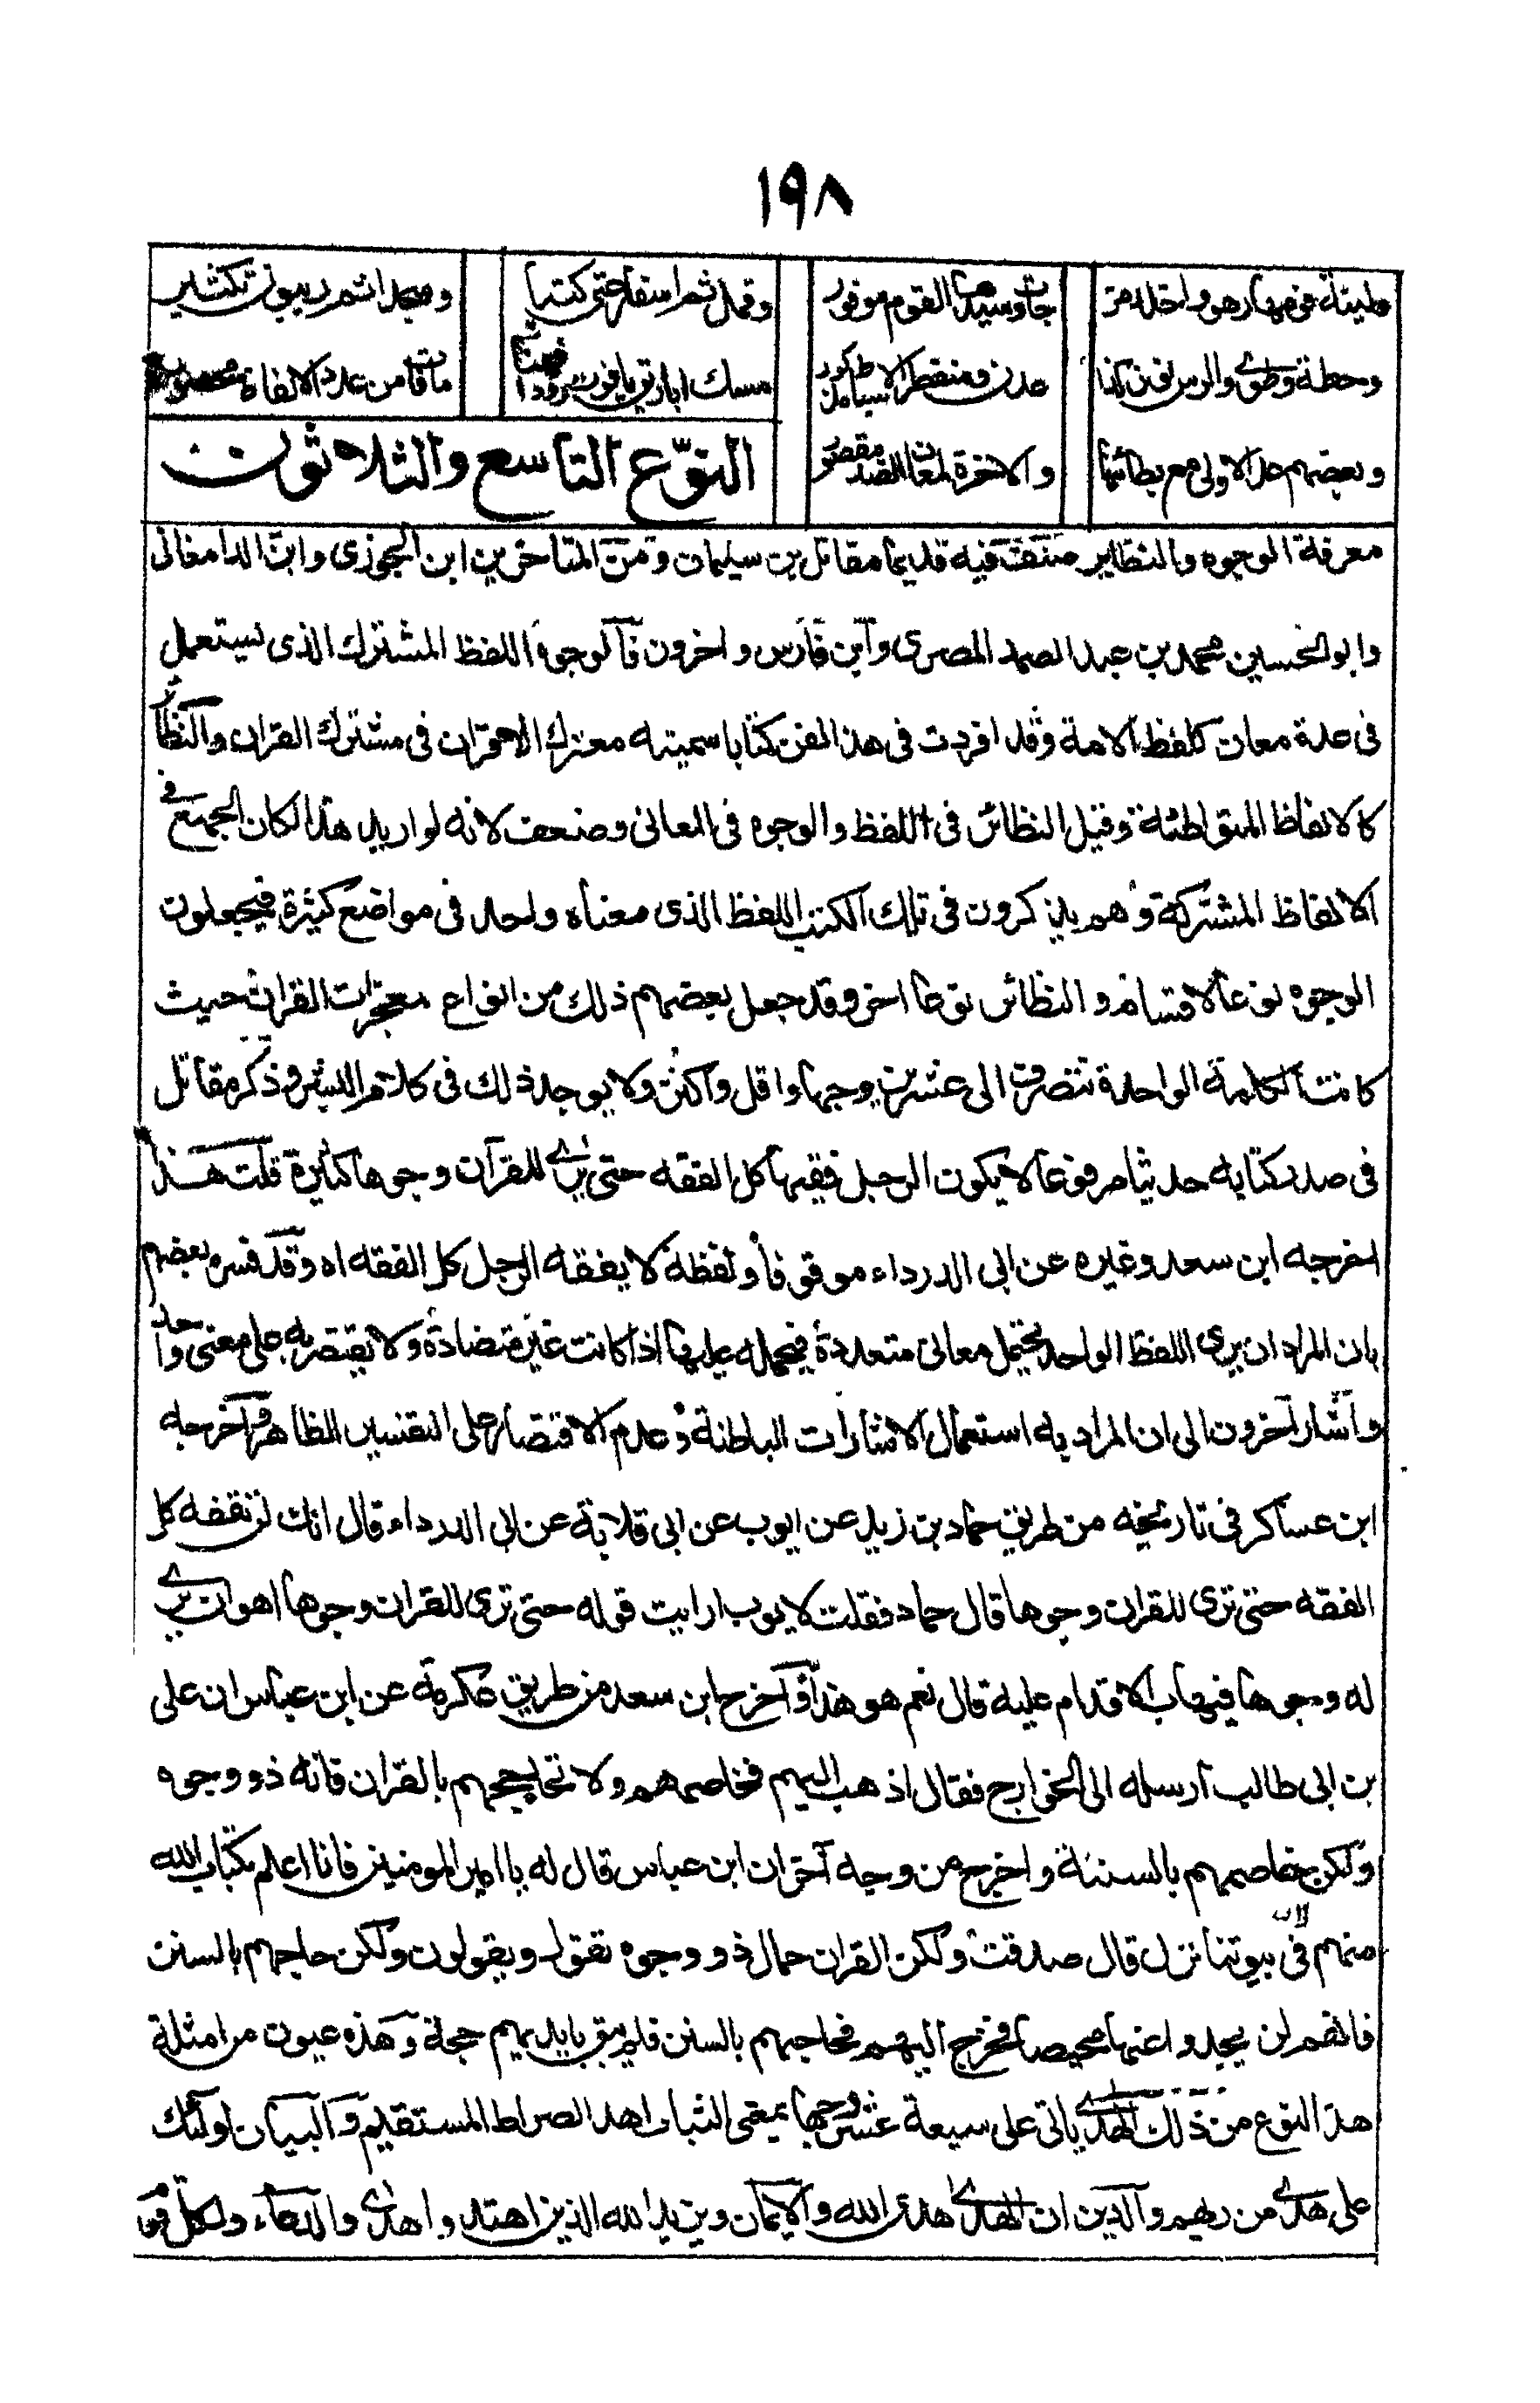 ١٩٨
وقمل ثم اسفار عنى كتبا
وسجل ثم ربيون تكثير
وحطة وطوى والرس نون كذا
عدن ومنفطر الاسباط مذكور
مسك اباريق ياقوت رووا
ما فات من عدد الالفاظ محصور
وبعضهم عد الاولى مع بطائنها
والاخرة لمعان الضد مقصور
النوع التاسع والثلاثون
معرفة الوجوه والنظاير صنف فيه قديما مقاتل بن سليمان ومن المتاخرين ابن الجوزى وابن الدامغانى
وابو الحسين محمد بن عبد الصمد المصرى وابن فارس واخرون فالوجوه اللفظ المشترك الذى يستعمل
فى عدة معان كلفظ الامة وقد افردت فى هذا الفن كتابا سميته معترك الاقران فى مشترك القران والنظائر
كالالفاظ المتواطئة وقيل النظائر فى اللفظ والوجوه فى المعانى وضعف لانه لو اريد هذا لكان الجمع فى
الالفاظ المشتركة وهم يذكرون فى تلك الكتب اللفظ الذى معناه واحد فى مواضع كثيرة فيجعلون
الوجوه نوعا لاقسام والنظائر نوعا اخر وقد جعل بعضهم ذلك من انواع معجزات القران حيث
كانت الكلمة الواحدة تتصرف الى عشرين وجها واقل واكثر ولا يوجد ذلك فى كلام البشر وذكر مقاتل
فى صدر كتابه حديثا مرفوعا لا يكون الرجل فقيها كل الفقه حتى يرى للقرآن وجوها كثيرة قلت هذا
اخرجه ابن سعد وغيره عن ابى الدرداء موقوفا ولفظه لا يفقه الرجل كل الفقه اه وقد فسره بعضهم
بان المراد ان يرى اللفظ الواحد يحتمل معانى متعددة فيحمله عليها اذا كانت غير متضادة ولا يقتصر به على معنى واحد
واشار آخرون الى ان المراد به استعمال الاشارات الباطنة وعدم الاقتصار على التفسير الظاهر واخرجه
ابن عساكر فى تاريخه من طريق حماد بن زيد عن ايوب عن ابى قلابة عن ابى الدرداء قال انك لن تفقه كل
الفقه حتى ترى للقران وجوها قال حماد فقلت لايوب ارايت قوله حتى ترى للقران وجوها اهو ان يرى
له وجوها فيهاب الاقدام عليه قال نعم هو هذا واخرج ابن سعد من طريق عكرمة عن ابن عباس ان على
بن ابى طالب ارسله الى الخوارج فقال اذهب اليهم فخاصمهم ولا تحاججهم بالقران فانه ذو وجوه
ولكن خاصمهم بالسنة واخرج من وجه آخر ان ابن عباس قال له يا امير المومنين فانا اعلم بكتاب الله
منهم فى بيوتنا نزل قال صدقت ولكن القران حمال ذو وجوه تقول ويقولون ولكن حاجهم بالسنن
فانهم لن يجدوا عنها محيصا فخرج اليهم فحاجهم بالسنن فلم يبق بايديهم حجة وهذه عيون من امثلة
هذا النوع من ذلك الهدى ياتى على سبعة عشر وجها بمعنى الثبات اهدنا الصراط المستقيم والبيان اولئك
على هدى من ربهم والدين ان الهدى هدى الله والايمان ويزيد الله الذين اهتدوا هدى والدعاء ولكل قوم